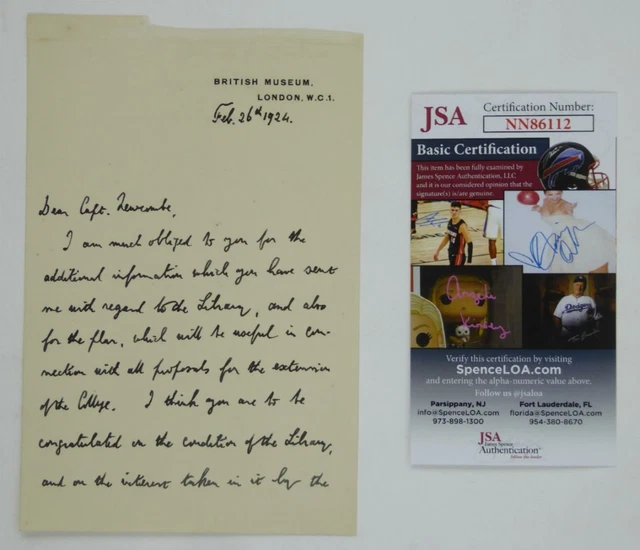 BRITISH MUSEUM,
LONDON, W.C.1.
Feb. 26th 1924.
Dear Capt. Newcombe,
I am much obliged to you for the
additional information which you have sent
me with regard to the Library, and also
for the plan, which will be useful in con-
nection with all proposals for the extension
of the College. I think you are to be
congratulated on the condition of the Library,
and on the interest taken in it by the
JSA
Certification Number:
NN86112
Basic Certification
This item has been fully examined by
James Spence Authentication, LLC
and it is our considered opinion that the
signature(s) is/are genuine.
Angela
Kinsey
Dodgers
Verify this certification by visiting
SpenceLOA.com
and entering the alpha-numeric value above.
Follow us @jsaloa
Parsippany, NJ
info@SpenceLOA.com
973-898-1300
Fort Lauderdale, FL
florida@SpenceLOA.com
954-380-8670
JSA
James Spence
Authentication
follow the leader